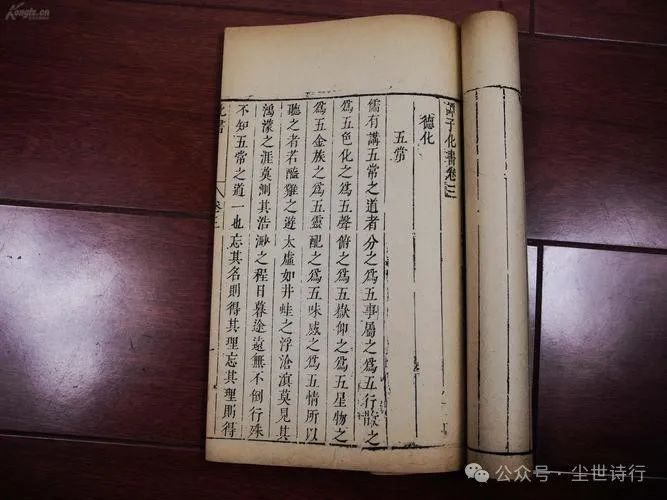 譚子化書卷三
德化
五常
儒有講五常之道者分之爲五事屬之爲五行散之
爲五色化之爲五聲俯之爲五嶽仰之爲五星物之
爲五金族之爲五靈配之爲五味感之爲五情所以
聽之者若醯雞之遊太虛如井蛙之浮滄溟莫見其
鴻濛之涯莫測其浩渺之程日暮途遠無不倒行殊
不知五常之道一也忘其名則得其理忘其理則得
化書
卷三
Kongfz.cn
公众号·尘世诗行